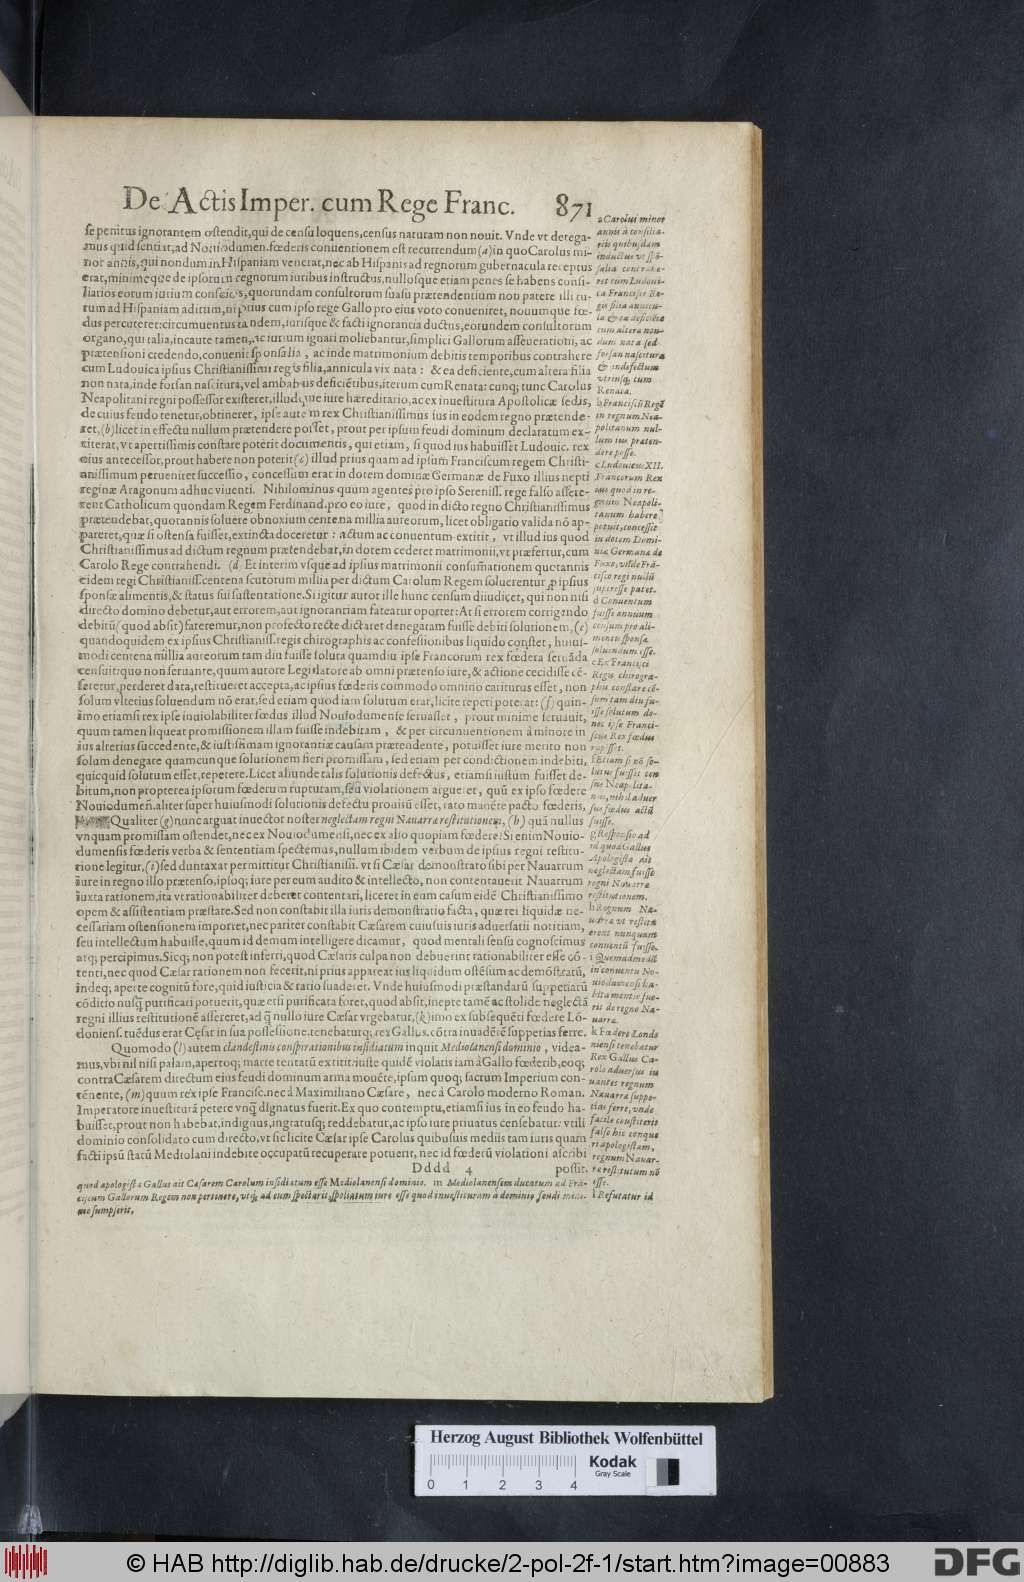 De Actis Imper. cum Rege Franc. 871
se penitus ignorantem ostendit, qui de censu loquens, census naturam non novit. Vnde vt derega-
mus quid sentiat, ad Noviodumen. fœderis conuentionem est recurrendum (a) in quo Carolus mi-
nor annis, qui nondum in Hispaniam venerat, nec ab Hispanis ad regnorum gubernacula receptus
erat, minimeque de ipsorum regnorum iuribus instructus, nullosque etiam penes se habens consi-
liarios eorum iurium conscios, quorundam consultorum suasu prætendentium non patere illi tu-
tum ad Hispaniam aditum, ni prius cum ipso rege Gallo pro eius voto conueniret, nouumque fœ-
dus percuteret: circumuentus tandem, iurisque & facti ignorantia ductus, eorundem consultorum
organo, qui talia, incaute tamen, ac iurium ignari moliebantur, simplici Gallorum asseuerationi, ac
prætensioni credendo, conuenit sponsalia, ac inde matrimonium debitis temporibus contrahere
cum Ludouica ipsius Christianissimi regis filia, annicula vix nata: & ea deficiente, cum altera filia
non nata, inde forsan nascitura, vel ambabus deficiẽtibus, iterum cum Renata: cunq; tunc Carolus
Neapolitani regni possessor existeret, illudque iure hæreditario, ac ex inuestitura Apostolicæ sedis,
de cuius feudo tenetur, obtineret, ipse autem rex Christianissimus ius in eodem regno prætende-
ret, (b) licet in effectu nullum prætendere posset, prout per ipsum feudi dominum declaratum ex-
titerat, vt apertissimis constare poterit documentis, qui etiam, si quod ius habuisset Ludouic. rex
eius antecessor, prout habere non poterit (c) illud prius quam ad ipsum Franciscum regem Christi-
anissimum perueniret successio, concessum erat in dotem dominæ Germanæ de Fuxo illius nepti
reginæ Aragonum adhuc viuenti. Nihilominus quum agentes pro ipso Sereniss. rege falso assere-
rent Catholicum quondam Regem Ferdinand. pro eo iure, quod in dicto regno Christianissimus
prætendebat, quotannis soluere obnoxium centena millia aureorum, licet obligatio valida nõ ap-
pareret, quæ si ostensa fuisset, extincta doceretur: actum ac conuentum extitit, vt illud ius quod
Christianissimus ad dictum regnum prætendebat, in dotem cederet matrimonii, vt præfertur, cum
Carolo Rege contrahendi. (d Et interim vsque ad ipsius matrimonii consumationem quotannis
eidem regi Christianiss. centena scutorum millia per dictum Carolum Regem soluerentur, p ipsius
sponsæ alimentis, & status sui sustentatione. Si igitur autor ille hunc censum diiudicet, qui non nisi
directo domino debetur, aut errorem, aut ignorantiam fateatur oportet: At si errorem corrigendo
debitũ (quod absit) fateremur, non profecto recte dictaret denegatam fuisse debiti solutionem, (e)
quandoquidem ex ipsius Christianiss. regis chirographis ac confessionibus liquido constet, huius-
modi centena millia aureorum tam diu fuisse soluta quamdiu ipse Francorum rex fœdera seruãda
censuit: quo non seruante, quum autore Legislatore ab omni prætenso iure, & actione cecidisse cẽ-
seretur, perderet data, restitueret accepta, ac ipsius fœderis commodo omnino cariturus esset, non
solum vlterius soluendum nõ erat, sed etiam quod iam solutum erat, licite repeti poterat: (f) quin-
imo etiamsi rex ipse inuiolabiliter fœdus illud Nouiodumense seruasset, prout minime seruauit,
quum tamen liqueat promissionem illam fuisse indebitam, & per circumuentionem à minore in
ius alterius succedente, & iustissimam ignorantiæ causam prætendente, potuisset iure merito non
solum denegare quamcunque solutionem fieri promissam, sed etiam per condictionem indebiti,
quicquid solutum esset, repetere. Licet aliunde talis solutionis defectus, etiamsi iustum fuisset de-
bitum, non propterea ipsorum fœderum rupturam, seu violationem argueret, quũ ex ipso fœdere
Nouiodumeñ. aliter super huiusmodi solutionis defectu prouisũ esset, rato manẽte pacto fœderis,
Qualiter (g) nunc arguat inuector noster neglectam regni Nauarræ restitutionem, (h) quã nullus
vnquam promissam ostendet, nec ex Nouiodumensi, nec ex alio quopiam fœdere? Si enim Nouio-
dumensis fœderis verba & sententiam spectemus, nullum ibidem verbum de ipsius regni restitu-
tione legitur, (i) sed duntaxat permittitur Christianiss. vt si Cæsar demonstrato sibi per Nauarrum
iure in regno illo prætenso, ipsoq; iure per eum audito & intellecto, non contentauerit Nauarrum
iuxta rationem, ita vt rationabiliter deberet contentari, liceret in eum casum eidẽ Christianissimo
opem & assistentiam præstare. Sed non constabit illa iuris demonstratio facta, quæ rei liquidæ ne-
cessariam ostensionem importet, nec pariter constabit Cæsarem cuiusuis iuris aduersarii notitiam,
seu intellectum habuisse, quum id demum intelligere dicamur, quod mentali sensu cognoscimus
atq; percipimus. Sicq; non potest inferri, quod Cæsaris culpa non debuerint rationabiliter esse cõ-
tenti, nec quod Cæsar rationem non fecerit, ni prius appareat ius liquidum ostẽsum ac demõstratũ,
indeq; aperte cognitũ fore, quid iusticia & ratio suaderet. Vnde huiusmodi præstandarũ suppetiarũ
cõditio nusq̃ purificari potuerit, quæ etsi purificata foret, quod absit, inepte tamẽ ac stolide neglectã
regni illius restitutionẽ assereret, ad q̃ nullo iure Cæsar vrgebatur, (k) imo ex subsequẽti fœdere Lõ-
doniens. tuẽdus erat Cęsar in sua possessione. tenebaturq; rex Gallus. cõtra inuadẽtẽ suppetias ferre.
Quomodo (l) autem clandestinis conspirationibus insidiatum inquit Mediolanensi dominio, videa-
mus, vbi nil nisi palam, apertoq; marte tentatũ extitit: iuste quidẽ violatis iam à Gallo fœderib, eoq;
contra Cæsarem directum eius feudi dominum arma mouẽte, ipsum quoq; sacrum Imperium con-
tẽnente, (m) quum rex ipse Francisc. nec à Maximiliano Cæsare, nec à Carolo moderno Roman.
Imperatore inuestiturã petere vnq̃ dignatus fuerit. Ex quo contemptu, etiamsi ius in eo feudo ha-
buisset, prout non habebat, indignus, ingratusq; reddebatur, ac ipso iure priuatus censebatur: vtili
dominio consolidato cum directo, vt sic licite Cæsar ipse Carolus quibusuis mediis tam iuris quam
facti ipsũ statũ Mediolani indebite occupatũ recuperare potuerit, nec id fœderũ violationi ascribi
Dddd 4 possit.
a Carolus minor
annis à consilia-
riis quibusdam
inductus vt spõ-
salia contrahe-
ret cum Ludoui-
ca Francisci Re-
gis filia annicu-
la & ea deficiẽte
cum altera non-
dum nata sed
forsan nascitura
& in defectum
vtriusq; cum
Renata.
b Franciscũ Regẽ
in regnum Nea-
politanum nul-
lum ius præten-
dere posse.
c Ludouicus XII.
Francorum Rex
ius quod in re-
gnum Neapoli-
tanum habere
potuit, concessit
in dotem Domi-
næ Germanæ de
Fuxo, vnde Frã-
cisco regi nullũ
superesse patet.
d Conuentum
fuisse annuum
censum pro ali-
mentis sponsæ
soluendum esse.
e Ex Francisci
Regis chirogra-
phis constare cẽ-
sum tam diu fu-
isse solutum do-
nec ipse Franci-
scus Rex fœdus
rupisset.
f Etiam si nõ so-
lutus fuisset cen
sus Neapolita-
nus, nihil aduer
sus fœdus actũ
fuisse.
g Responsio ad
id quod Gallus
Apologista ait
neglectam fuisse
regni Nauarræ
restitutionem.
h Regnum Na-
uarræ vt restitu
eretur nunquam
conuentũ fuisse.
i Quemadmodũ
in conuentu No-
uiodunensi ha-
bita mentio fue-
rit de regno Na-
uarræ.
k Fœdere Londo
niensi tenebatur
Rex Gallus Ca-
rolo aduersus in
uadentes regnum
Nauarræ suppe-
tias ferre, vnde
facile constiterit
falso hic conque
ri apologistam,
regnum Nauar-
ræ restitutum nõ
esse.
l Refutatur id
quod apologista Gallus ait Cæsarem Carolum insidiatum esse Mediolanensi dominio. m Mediolanensem ducatum ad Frã-
ciscum Gallorum Regem non pertinere, vtiq; ad eum spectaris, spoliatum iure esse quod inuestituram à domino feudi mini-
me sumpserit.
Herzog August Bibliothek Wolfenbüttel
Kodak
Gray Scale
0 1 2 3 4
© HAB http://diglib.hab.de/drucke/2-pol-2f-1/start.htm?image=00883
DFG